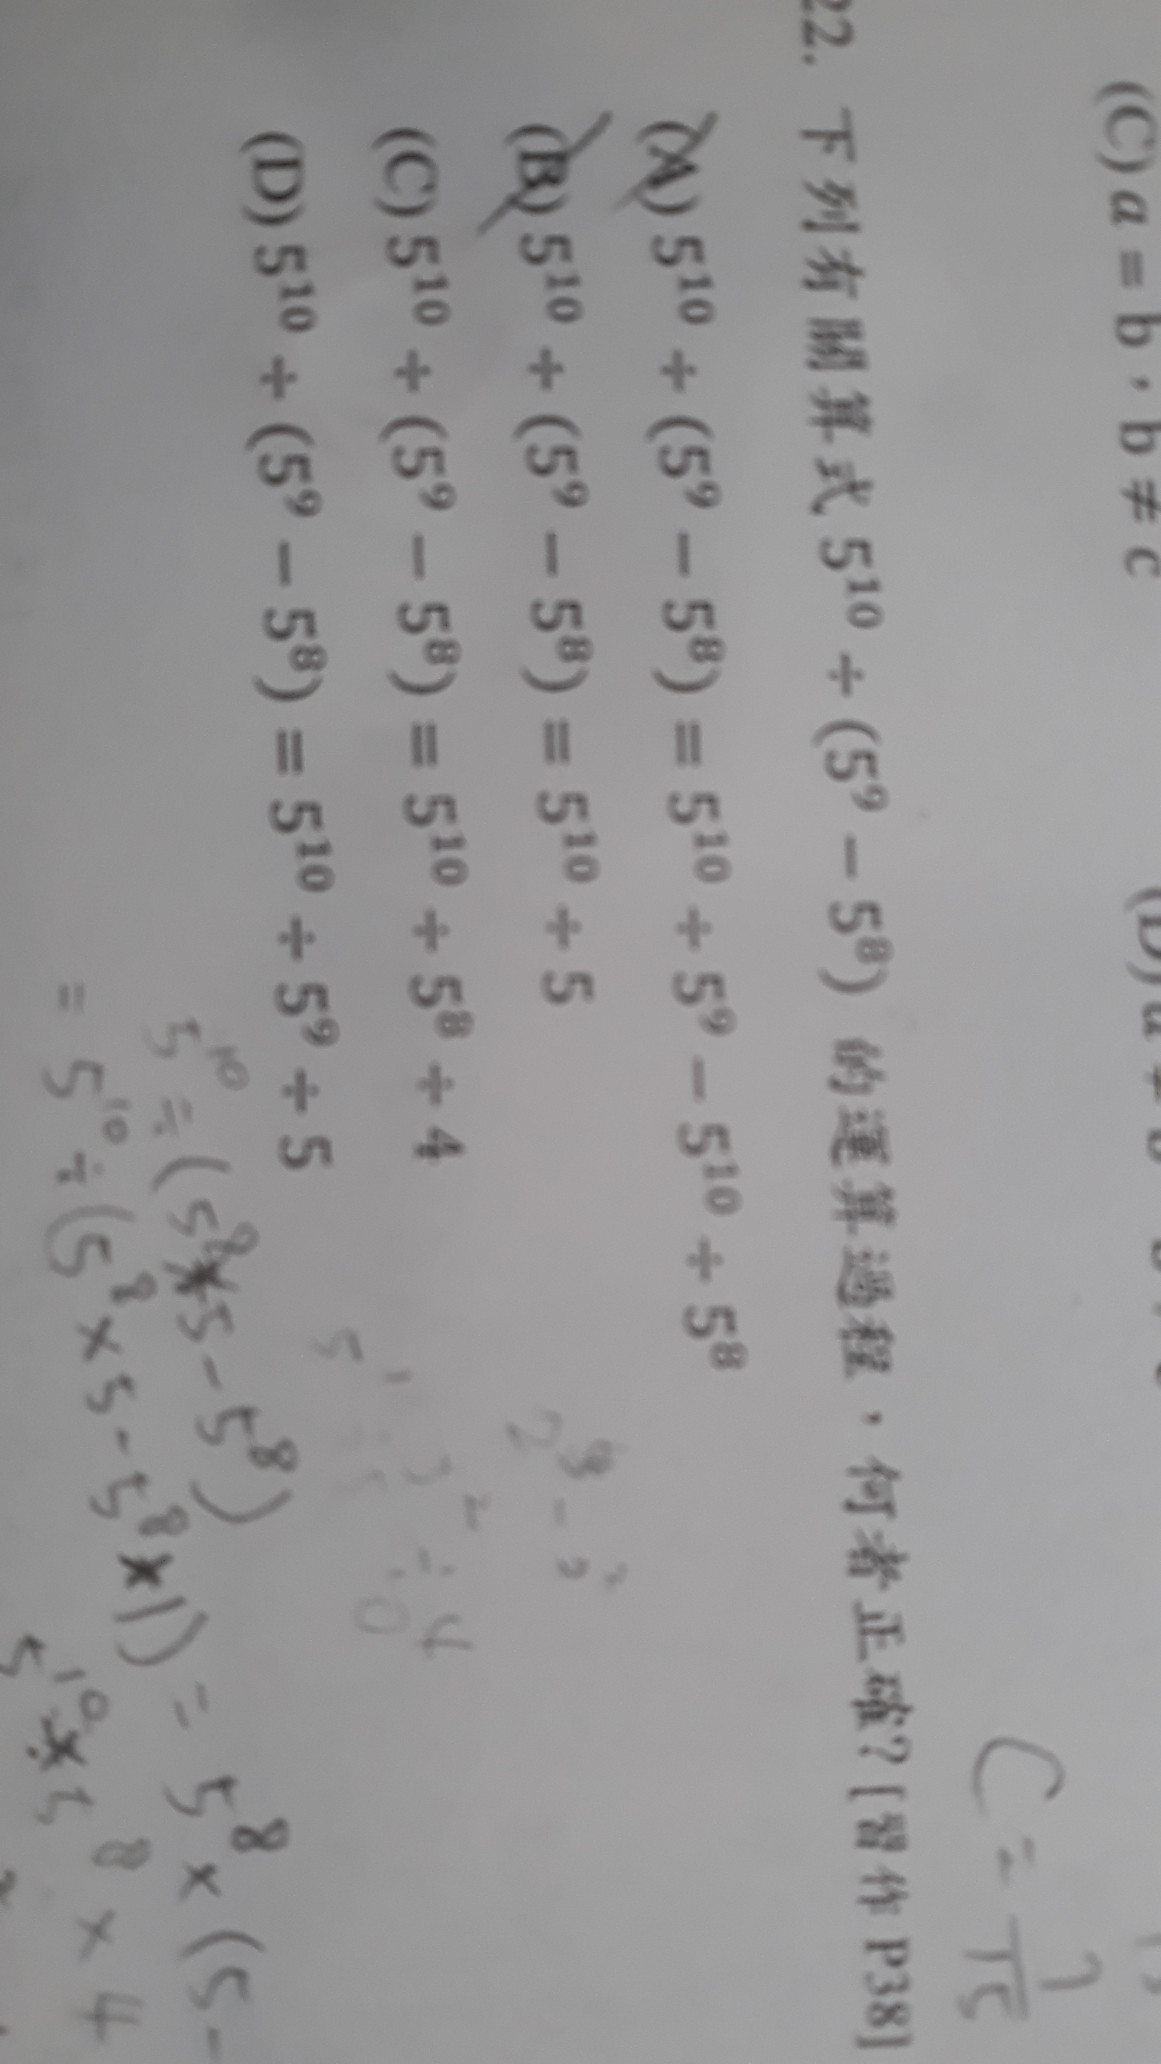 (C) a = b，b ≠ c
22. 下列有關算式 5¹⁰ ÷ (5⁹ − 5⁸) 的運算過程，何者正確？[習作 P38]
(A) 5¹⁰ ÷ (5⁹ − 5⁸) = 5¹⁰ ÷ 5⁹ − 5¹⁰ ÷ 5⁸
(B) 5¹⁰ ÷ (5⁹ − 5⁸) = 5¹⁰ ÷ 5
(C) 5¹⁰ ÷ (5⁹ − 5⁸) = 5¹⁰ ÷ 5⁸ ÷ 4
(D) 5¹⁰ ÷ (5⁹ − 5⁸) = 5¹⁰ ÷ 5⁹ ÷ 5
5¹⁰ ÷ (5⁸ × 5 − 5⁸)
= 5¹⁰ ÷ (5⁸ × 5 − 5⁸ × 1) = 5⁸ × (5 −